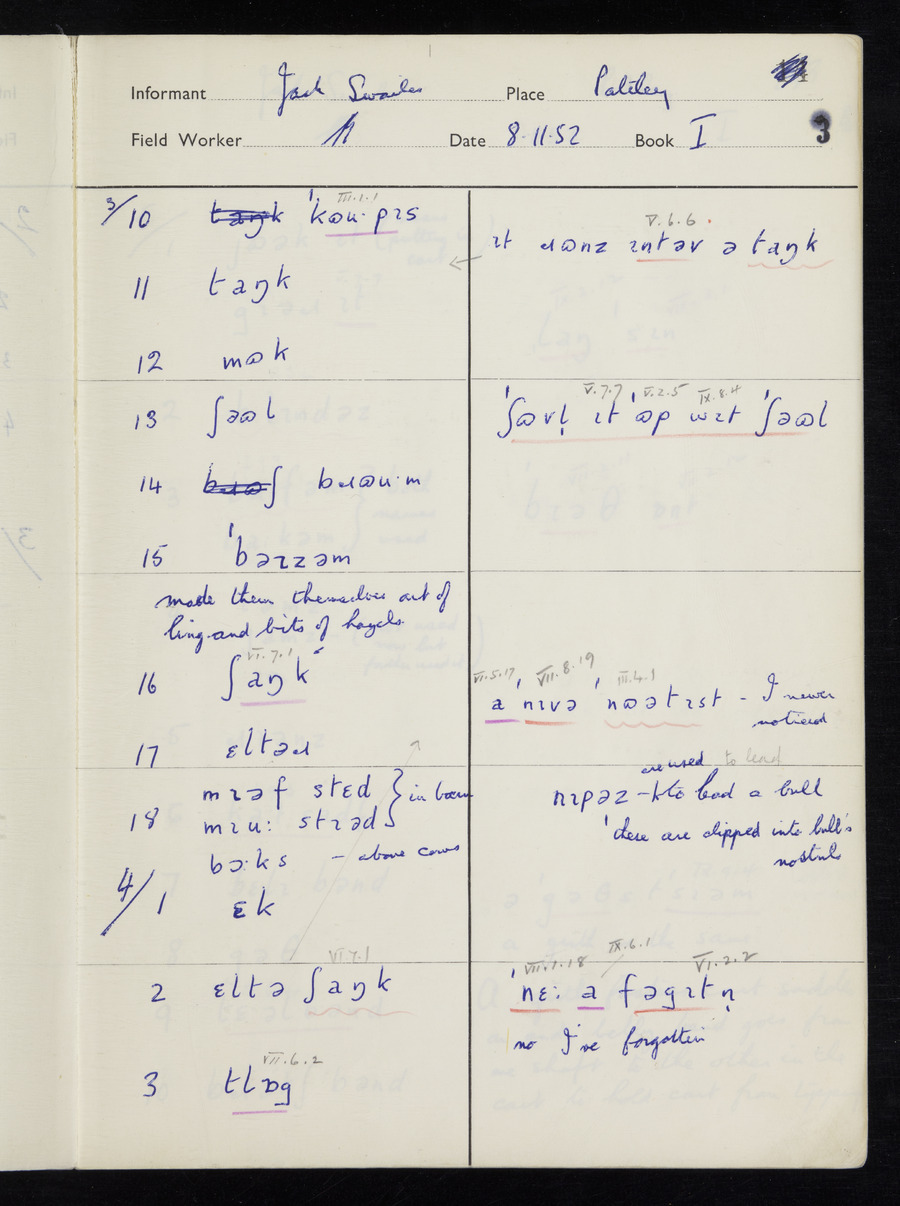 Informant Jack Swailes Place Pateley
Field Worker Date 8.11.52 Book I 3
III.1.1
3/10 ˈkɷu·pɪs
V.6.6
ɪt ɹɷnz ɪntəv ə taŋk
11 taŋk
12 mɷk
V.7.7 V.2.5 IX.8.4
13 ʃəɷl
ˈʃɷvl̩ ɪt ˈɷp wɪt ˈʃəɷl
14 bɹɷu·m
15 ˈbəɪzəm
made them themselves out of
ling and bits of hazels.
VI.7.1
16 ʃaŋk
VI.5.17 VII.8.19 III.4.1
a ˈnɪvə ˈnɷətɪst - I never
noticed
17 ɛltəɹ
18 mɪəf stɛd } in barn
mɪu: stɪəd
are used to lead
nɪpəz - to lead a bull
these are clipped into bull's
nostrils
bɔ·ks - above cows
4/1 ɛk
VI.7.1
2 ɛltə ʃaŋk
VII.1.18 IX.6.1 VI.2.2
ˈnɛ: a fəgɪtn̩
no I've forgotten
VII.6.2
3 tlɒg